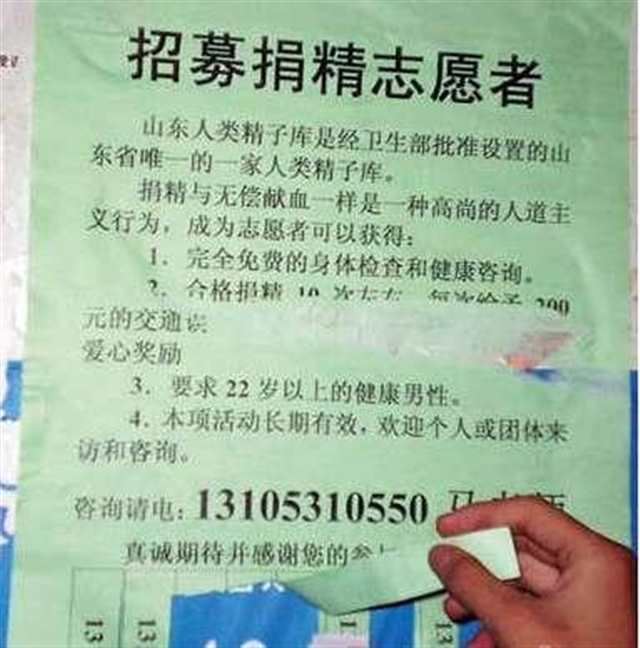 招募捐精志愿者
山东人类精子库是经卫生部批准设置的山
东省唯一的一家人类精子库。
捐精与无偿献血一样是一种高尚的人道主
义行为，成为志愿者可以获得：
1．完全免费的身体检查和健康咨询。
2．合格捐精 10 次左右，每次给予 200
元的交通误
爱心奖励
3．要求 22 岁以上的健康男性。
4．本项活动长期有效，欢迎个人或团体来
访和咨询。
咨询请电：13105310550 马老师
真诚期待并感谢您的参
13
13
1
13